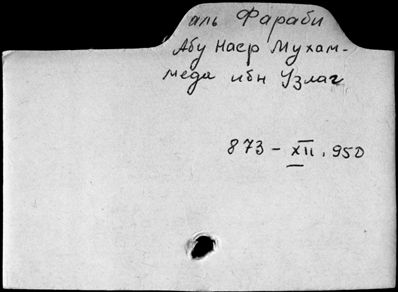 аль Фараби
Абу Наср Мухам-
меда ибн Узлаг
873 - XII. 950